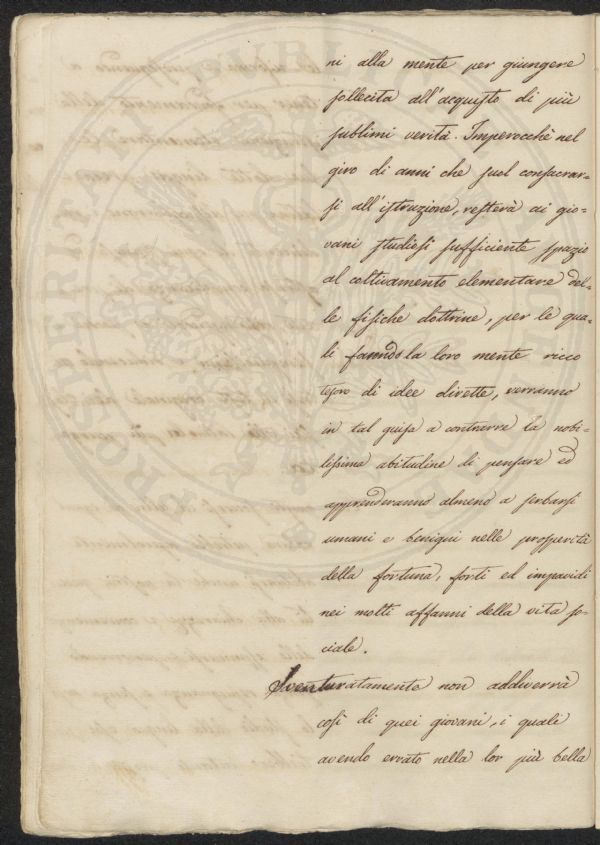 ni alla mente per giungere
sollecita all'acquisto di più
sublimi verità. Imperocchè nel
giro di anni che suol consacrar-
si all'istruzione, resterà ai gio-
vani studiosi sufficiente spazio
al coltivamento elementare del-
le fisiche dottrine, per le qua-
li facendo la loro mente ricco
tesoro di idee dirette, verranno
in tal guisa a contrarre la nobi-
lissima abitudine di pensare ed
apprenderanno almeno a serbarsi
umani e benigni nelle prosperità
della fortuna, forti ed impavidi
nei molti affanni della vita so-
ciale.
Sventuratamente non addiverrà
così di quei giovani, i quali
avendo errato nella lor più bella